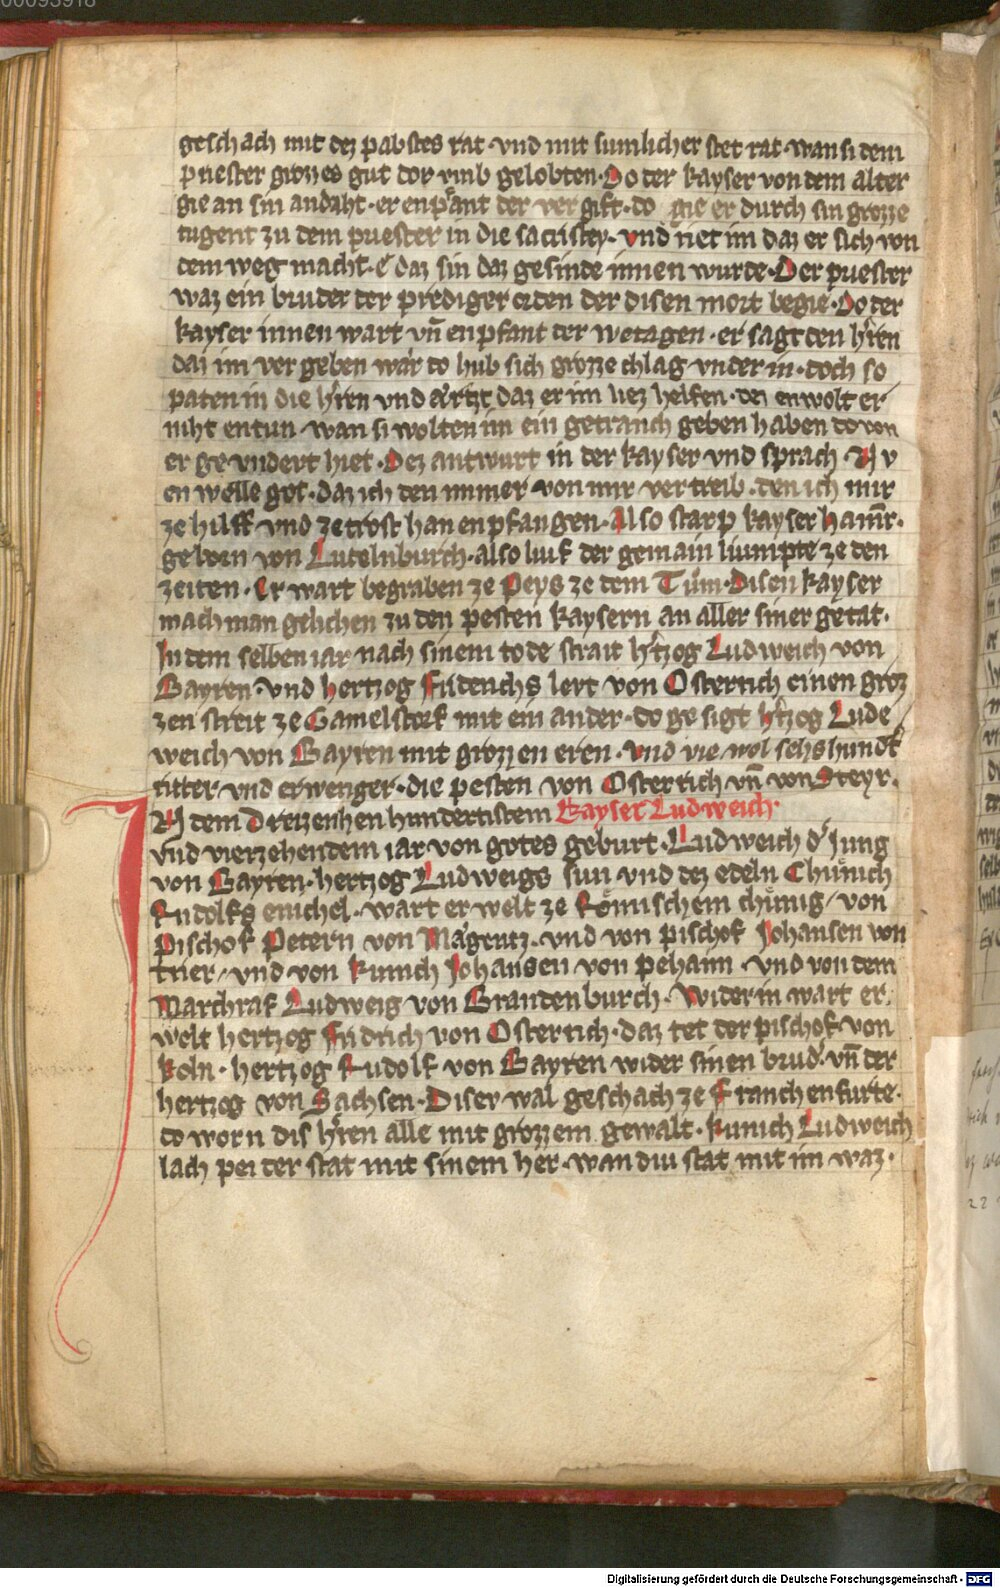 00093918
geschach mit dez pabstes rat · vnd mit sumlicher stet rat · wan si dem
priester grozzes gut dor vmb gelobten · Do der kayser von dem alter
gie an sin andaht · er enpfant der vergift · do gie er durch sin grozze
tugent zu dem priester in die sacristey · vnd riet im daz er sich von
dem weg macht · e daz sin daz gesinde innen wurde · Der priester
waz ein bruder der prediger orden der disen mort begie · Do der
kayser innen wart vn̄ enpfant der wetagen · er sagt den h̄ren
daz im vergeben wär do hub sich grozze chlag vnder in · doch so
paten in die h̄ren vnd ärtzt daz er im liez helfen · dez enwolt er
niht entun · wan si wolten im ein getranch geben haben do von
er gevndert hiet · Dez antwurt in der kayser vnd sprach · Nv
en welle got · daz ich den immer von mir vertreib · den ich mir
ze hilff vnd ze trost han enpfangen · Also starp kayser hainr̄ ·
geborn von Lutelnburch · also luf der gemain liumpte ze den
zeiten · Er wart begraben ze Peys ze dem Tům · Disen kayser
mach man gelichen zu den pesten kaysern an aller siner getat ·
In dem selben iar nach sinem tode strait h̄tzog Ludweich von
Bayren · vnd hertzog fridrichs lert von Osterrich einen groz
zen streit ze Gamelstorf mit ein ander · do gesigt h̄tzog Lude
weich von Bayren mit grozzen eren · vnd vie wol sehs hundt̄
ritter vnd erwerger · die pesten von Osterrich vn̄ von Steyr ·
IN dem Dreizenhenhundertistem Kayser Ludweich ·
vnd vierzehendem iar von gotes geburt · Ludweich d' Jung
von Bayren · hertzog Ludweigs sun vnd dez edeln Chuͤnich
Rudolfs enichel · wart erwelt ze Römischem chuͤnig / von
Pischof Petern von Mägentz · vnd von pischof Johansen von
trier / vnd von Kunich Johansen von pehaim · vnd von dem
Marchraf Ludweig von Brandenburch · Wider in wart er
welt hertzog fridrich von Osterrich · daz tet der pischof von
Koln · hertzog Rudolf von Bayren wider sinen brud' · vn̄ der
hertzog von Sachsen · Diser wal geschach ze Franchenfurte ·
do worn dis h̄ren alle mit grozzem gewalt · kunich Ludweich
lach pei der stat mit sinem her · wan diu stat mit im waz ·
Digitalisierung gefördert durch die Deutsche Forschungsgemeinschaft - DFG